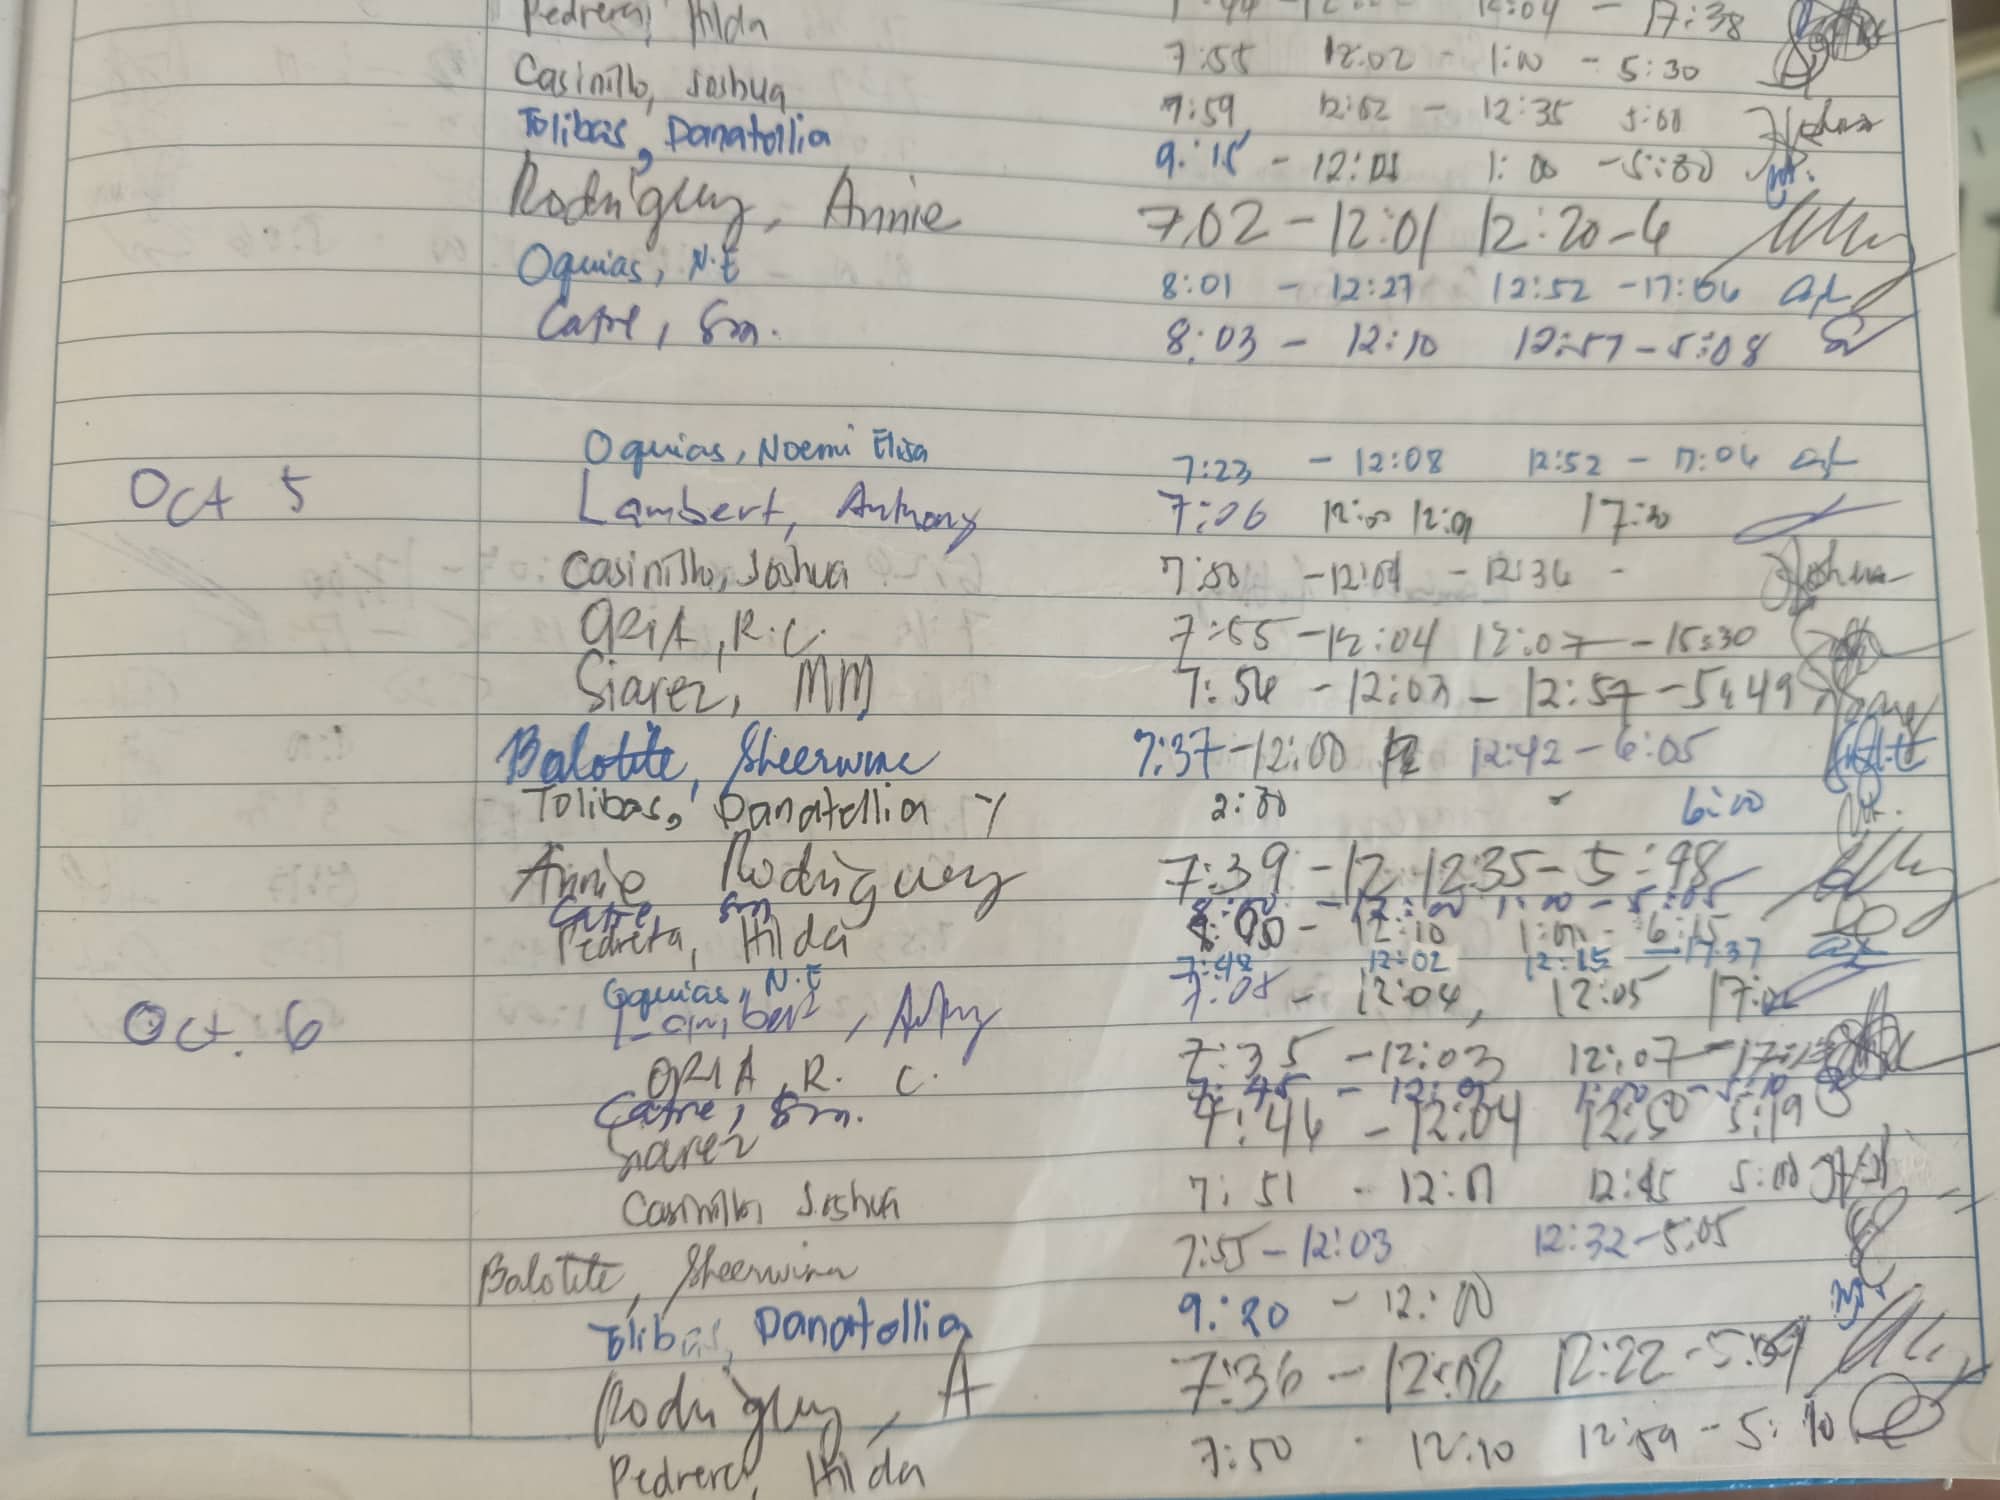 Pedrera, Hilda 12:04 - 17:38
7:55 12:02 - 1:00 - 5:30
Casinillo, Joshua 7:59 12:02 - 12:35 5:00
Tolibas, Danatollia 9:15 - 12:01 1:00 - 5:30
Rodriguez, Annie 7:02 - 12:01 12:20 - 6
Oquias, N.E 8:01 - 12:27 12:52 - 17:06
Catre, Sm. 8:03 - 12:10 12:57 - 5:08
Oquias, Noemi Elisa 7:23 - 12:08 12:52 - 17:04
Oct 5 Lambert, Anthony 7:06 12:00 12:01 17:30
Casinillo, Joshua 7:50 - 12:01 - 12:36 -
ORIA, R.C. 7:55 - 12:04 12:07 - 15:30
Siarez, MM 7:56 - 12:03 - 12:57 - 5:49
Balotite, Sheerwina 7:37 - 12:00 12:42 - 6:05
Tolibas, Danatollia Y 2:00 - 6:00
Annie Rodriguez 7:39 - 12 12:35 - 5:48
Catre Sm 8:00 - 12:00 1:00 - 5:05
Pedrera, Hilda 12:10 6:15
Oquias, N.E 7:48 12:02 12:15 - 17:37
Oct. 6 Lambert, 12:04, 12:05
ORIA, R. C. 7:35 - 12:03 12:07
Catre, Sm. 7:45 - 5:10
Siarez - 12:04 12:50 5:19
Casinillo, Joshua 7:51 - 12:01 12:45 5:00
Balotite, Sheerwina 7:55 - 12:03 12:32 - 5:05
Tolibas, Danatollia 9:20 - 12:00
Rodriguez, A 7:36 - 12:02 12:22
Pedrera, Hilda 7:50 - 12:10 12:59 - 5:10